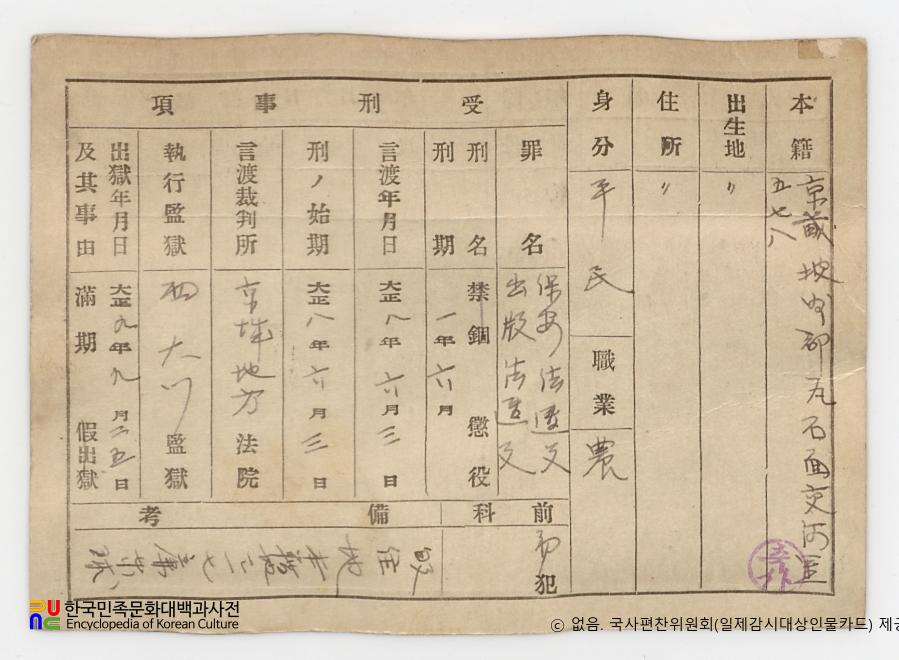 本籍
京畿坡州郡瓦石面交河里
五七八
出生地
〃
住所
〃
身分
平民
職業
農
受刑事項
罪名
保安法違反
出版法違反
刑名
禁錮 懲役
刑期
一年六月
言渡年月日
大正八年 六月三日
刑ノ始期
大正八年六月三日
言渡裁判所
京城地方法院
執行監獄
西大門監獄
出獄年月日
及其事由
大正九年九月二五日
滿期 假出獄
前科
初犯
備考
한국민족문화대백과사전
Encyclopedia of Korean Culture
© 없음. 국사편찬위원회(일제감시대상인물카드) 제공